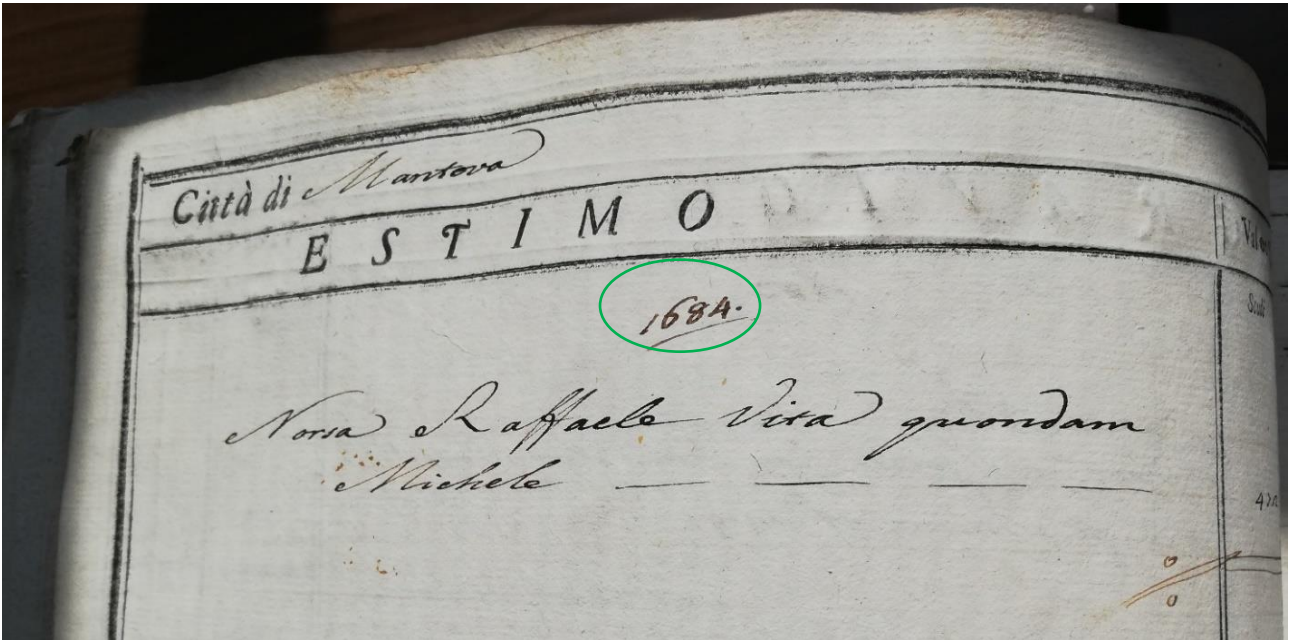 Città di Mantova
ESTIMO
1684.
Norsa Raffaele Vita quondam
Michele — — — —